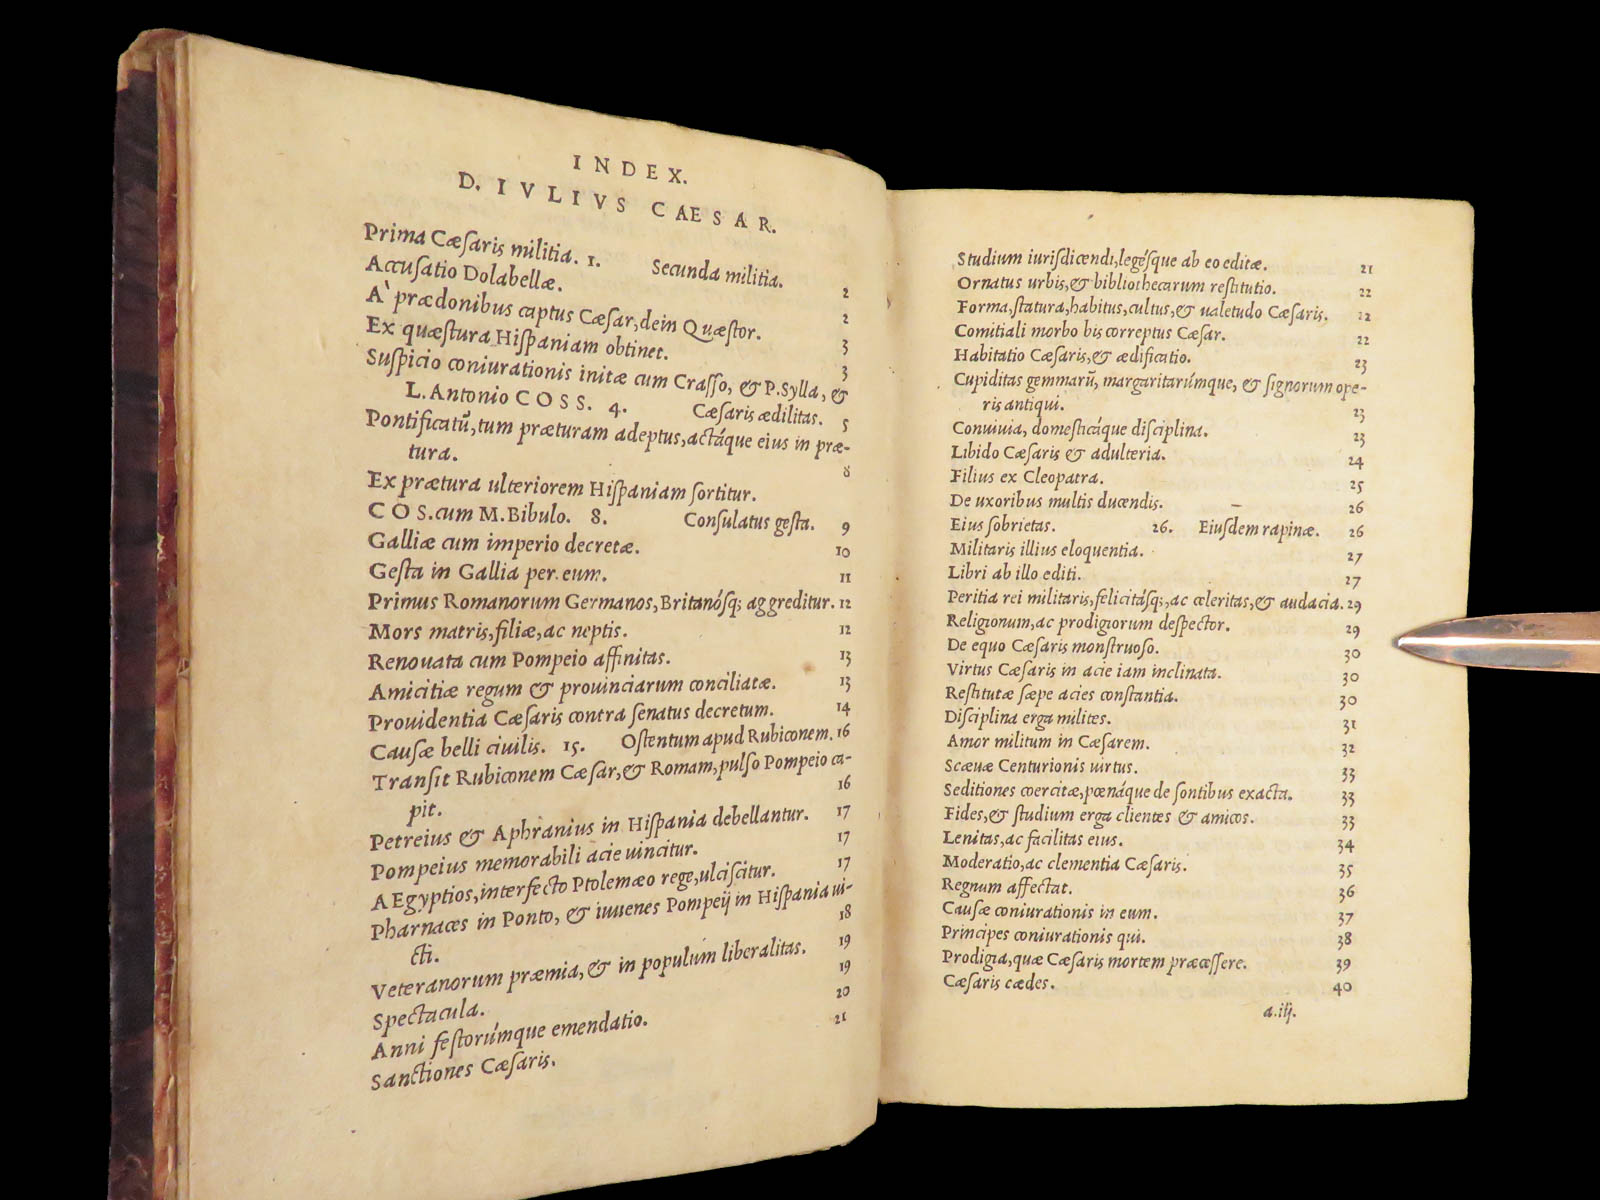 INDEX.
D. IVLIVS CAESAR.
Prima Cæſaris militia. 1. Secunda militia. 2
Accuſatio Dolabellæ. 2
A' prædonibus captus Cæſar, dein Quæſtor. 3
Ex quæſtura Hiſpaniam obtinet. 3
Suſpicio coniurationis initæ cum Craſſo, & P. Sylla, &
L. Antonio COSS. 4. Cæſaris ædilitas. 5
Pontificatũ, tum præturam adeptus, actáque eius in præ-
tura. 8
Ex prætura ulteriorem Hiſpaniam ſortitur.
COS. cum M. Bibulo. 8. Conſulatus geſta. 9
Galliæ cum imperio decretæ. 10
Geſta in Gallia per eum. 11
Primus Romanorum Germanos, Britanósq; aggreditur. 12
Mors matris, filiæ, ac neptis. 12
Renouata cum Pompeio affinitas. 13
Amicitiæ regum & prouinciarum conciliatæ. 13
Prouidentia Cæſaris contra ſenatus decretum. 14
Cauſæ belli ciuilis. 15. Oſtentum apud Rubiconem. 16
Tranſit Rubiconem Cæſar, & Romam, pulſo Pompeio ca-
pit. 16
Petreius & Aphranius in Hiſpania debellantur. 17
Pompeius memorabili acie uincitur. 17
AEgyptios, interfecto Ptolemæo rege, ulciſcitur. 17
Pharnaces in Ponto, & iuuenes Pompeij in Hiſpania ui-
cti. 18
Veteranorum præmia, & in populum liberalitas. 19
Spectacula. 19
Anni feſtorúmque emendatio. 20
Sanctiones Cæſaris. 21
Studium iuriſdicendi, legéſque ab eo editæ. 21
Ornatus urbis, & bibliothecarum reſtitutio. 22
Forma, ſtatura, habitus, cultus, & ualetudo Cæſaris. 22
Comitiali morbo bis correptus Cæſar. 22
Habitatio Cæſaris, & ædificatio. 23
Cupiditas gemmarũ, margaritarúmque, & ſignorum ope-
ris antiqui. 23
Conuiuia, domeſticáque diſciplina. 23
Libido Cæſaris & adulteria. 24
Filius ex Cleopatra. 25
De uxoribus multis ducendis. 26
Eius ſobrietas. 26. Eiuſdem rapinæ. 26
Militaris illius eloquentia. 27
Libri ab illo editi. 27
Peritia rei militaris, felicitáſq;, ac celeritas, & audacia. 29
Religionum, ac prodigiorum deſpector. 29
De equo Cæſaris monſtruoſo. 30
Virtus Cæſaris in acie iam inclinata. 30
Reſtitutæ ſæpe acies conſtantia. 30
Diſciplina erga milites. 31
Amor militum in Cæſarem. 32
Scæuæ Centurionis uirtus. 33
Seditiones coercitæ, pœnáque de ſontibus exacta. 33
Fides, & ſtudium erga clientes & amicos. 33
Lenitas, ac facilitas eius. 34
Moderatio, ac clementia Cæſaris. 35
Regnum affectat. 36
Cauſæ coniurationis in eum. 37
Principes coniurationis qui. 38
Prodigia, quæ Cæſaris mortem præceſſere. 39
Cæſaris cædes. 40
a.iij.